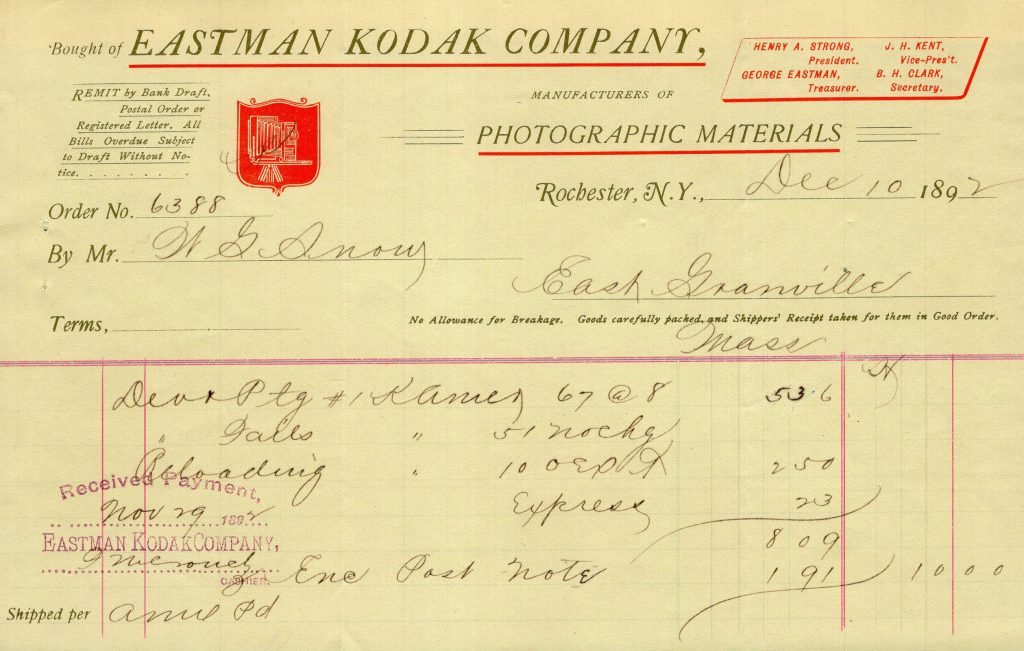 Bought of EASTMAN KODAK COMPANY,
HENRY A. STRONG, President.
J. H. KENT, Vice-Pres't.
GEORGE EASTMAN, Treasurer.
B. H. CLARK, Secretary.
REMIT by Bank Draft,
Postal Order or
Registered Letter. All
Bills Overdue Subject
to Draft Without No-
tice.
MANUFACTURERS OF
PHOTOGRAPHIC MATERIALS
Rochester, N.Y., Dec 10 1892
Order No. 6388
By Mr. W G Snow
East Granville
Terms,
No Allowance for Breakage. Goods carefully packed, and Shippers' Receipt taken for them in Good Order.
Mass
Ptg #1 67 @ 8 536
" Fails " 51 no chg
Reloading " 100 Exp 250
Received Payment,
Express 23
Nov 29 1892
EASTMAN KODAK COMPANY,
809
CASHIER.
Enc Post Note 191 1000
Shipped per Pd